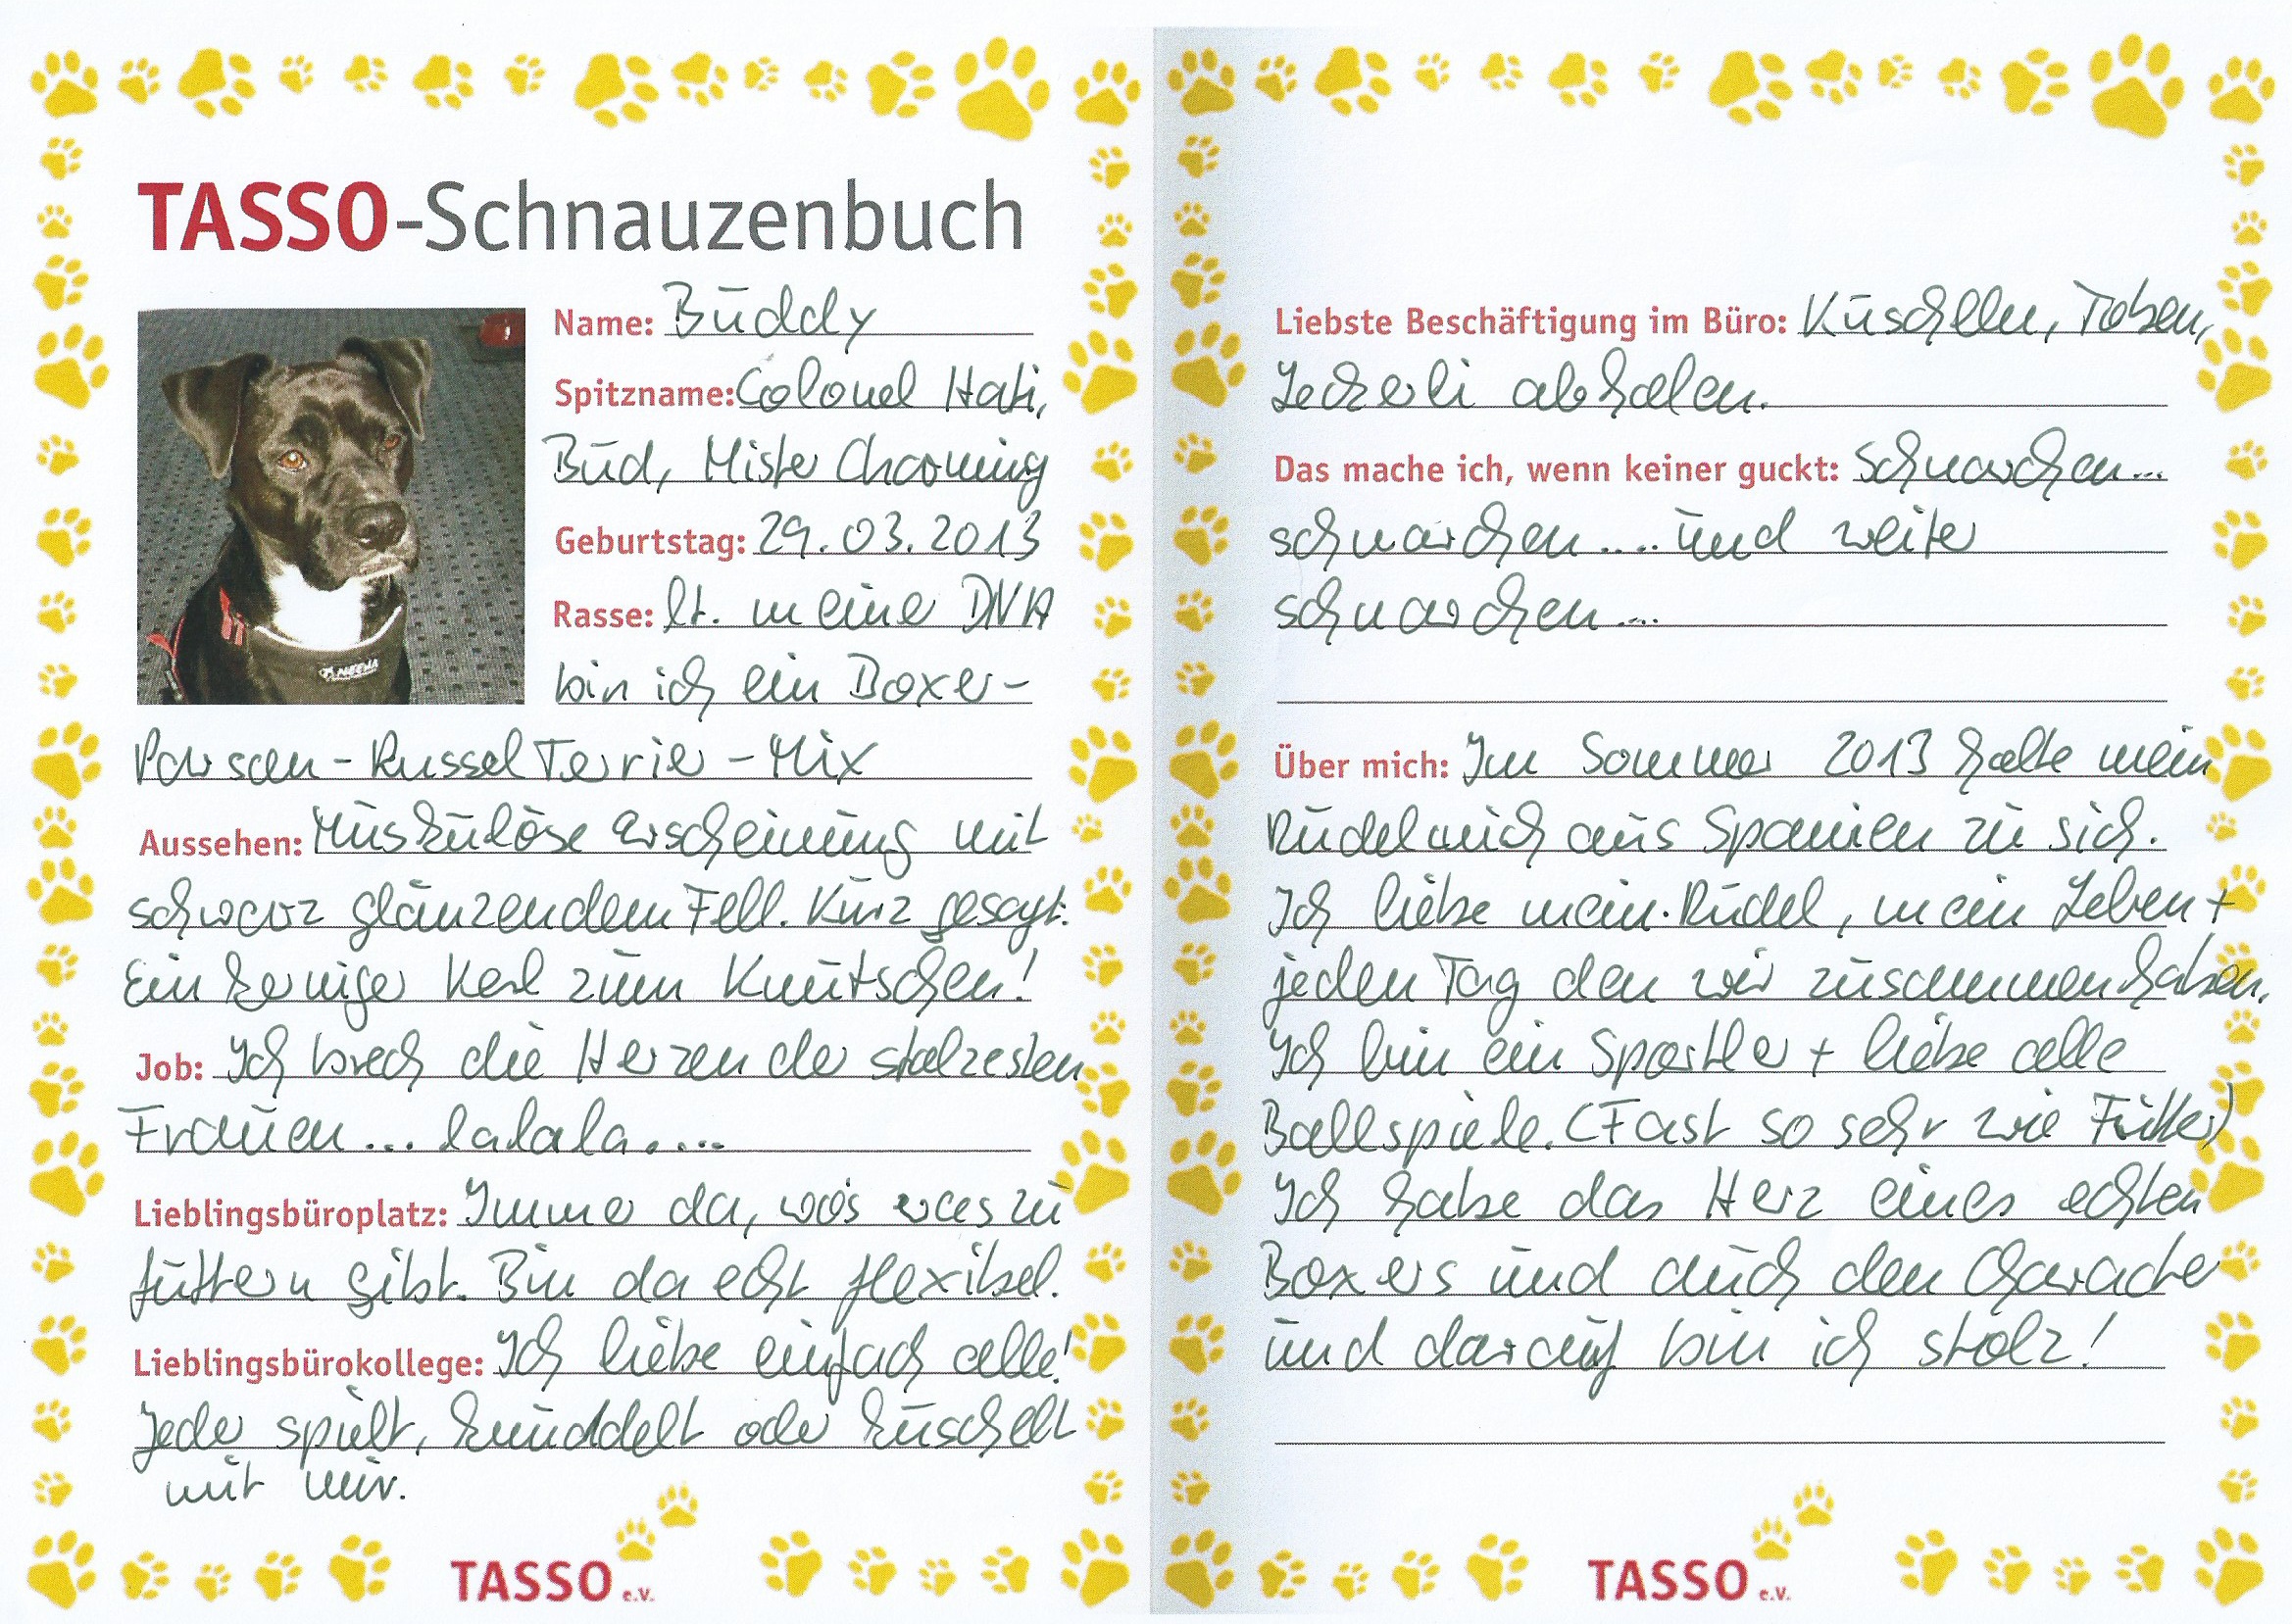 TASSO-Schnauzenbuch
Name: Buddy
Spitzname: Colonel Hati,
Bud, Mister Charming
Geburtstag: 29.03.2013
Rasse: lt. meiner DNA
bin ich ein Boxer-
Parson-Russel Terrier-Mix
Aussehen: Muskulöse Erscheinung mit
schwarz glänzendem Fell. Kurz gesagt:
Ein kerniger Kerl zum Knutschen!
Job: Ich brech die Herzen der stolzesten
Frauen... lalala....
Lieblingsbüroplatz: Immer da, wo's was zu
futtern gibt. Bin da echt flexibel.
Lieblingsbürokollege: Ich liebe einfach alle!
Jeder spielt, knuddelt oder kuschelt
mit mir.
TASSO e.V.
Liebste Beschäftigung im Büro: Kuscheln, Toben,
Leckerli abholen.
Das mache ich, wenn keiner guckt: schnarchen...
schnarchen.... und weiter
schnarchen....
Über mich: Im Sommer 2013 holte mein
Rudel mich aus Spanien zu sich.
Ich liebe mein Rudel, mein Leben +
jeden Tag den wir zusammen haben.
Ich bin ein Sportler + liebe alle
Ballspiele. (Fast so sehr wie Futter)
Ich habe das Herz eines echten
Boxers und auch den Charackter
und darauf bin ich stolz!
TASSO e.V.